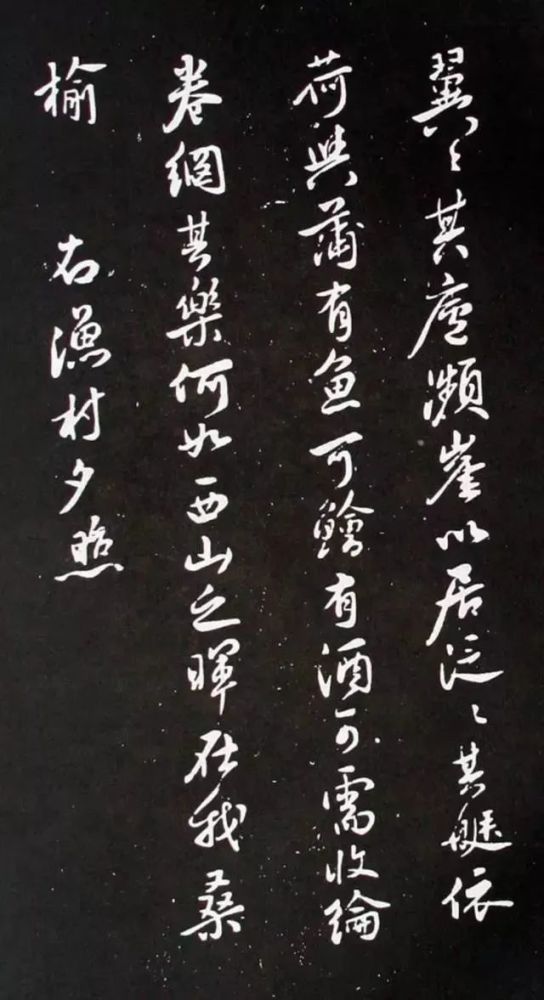 翼〻其廬濒崖以居泛〻其艇依
荷與蒲有魚可鱠有酒可需收綸
卷網其樂何如西山之暉在我桑
榆 右漁村夕照